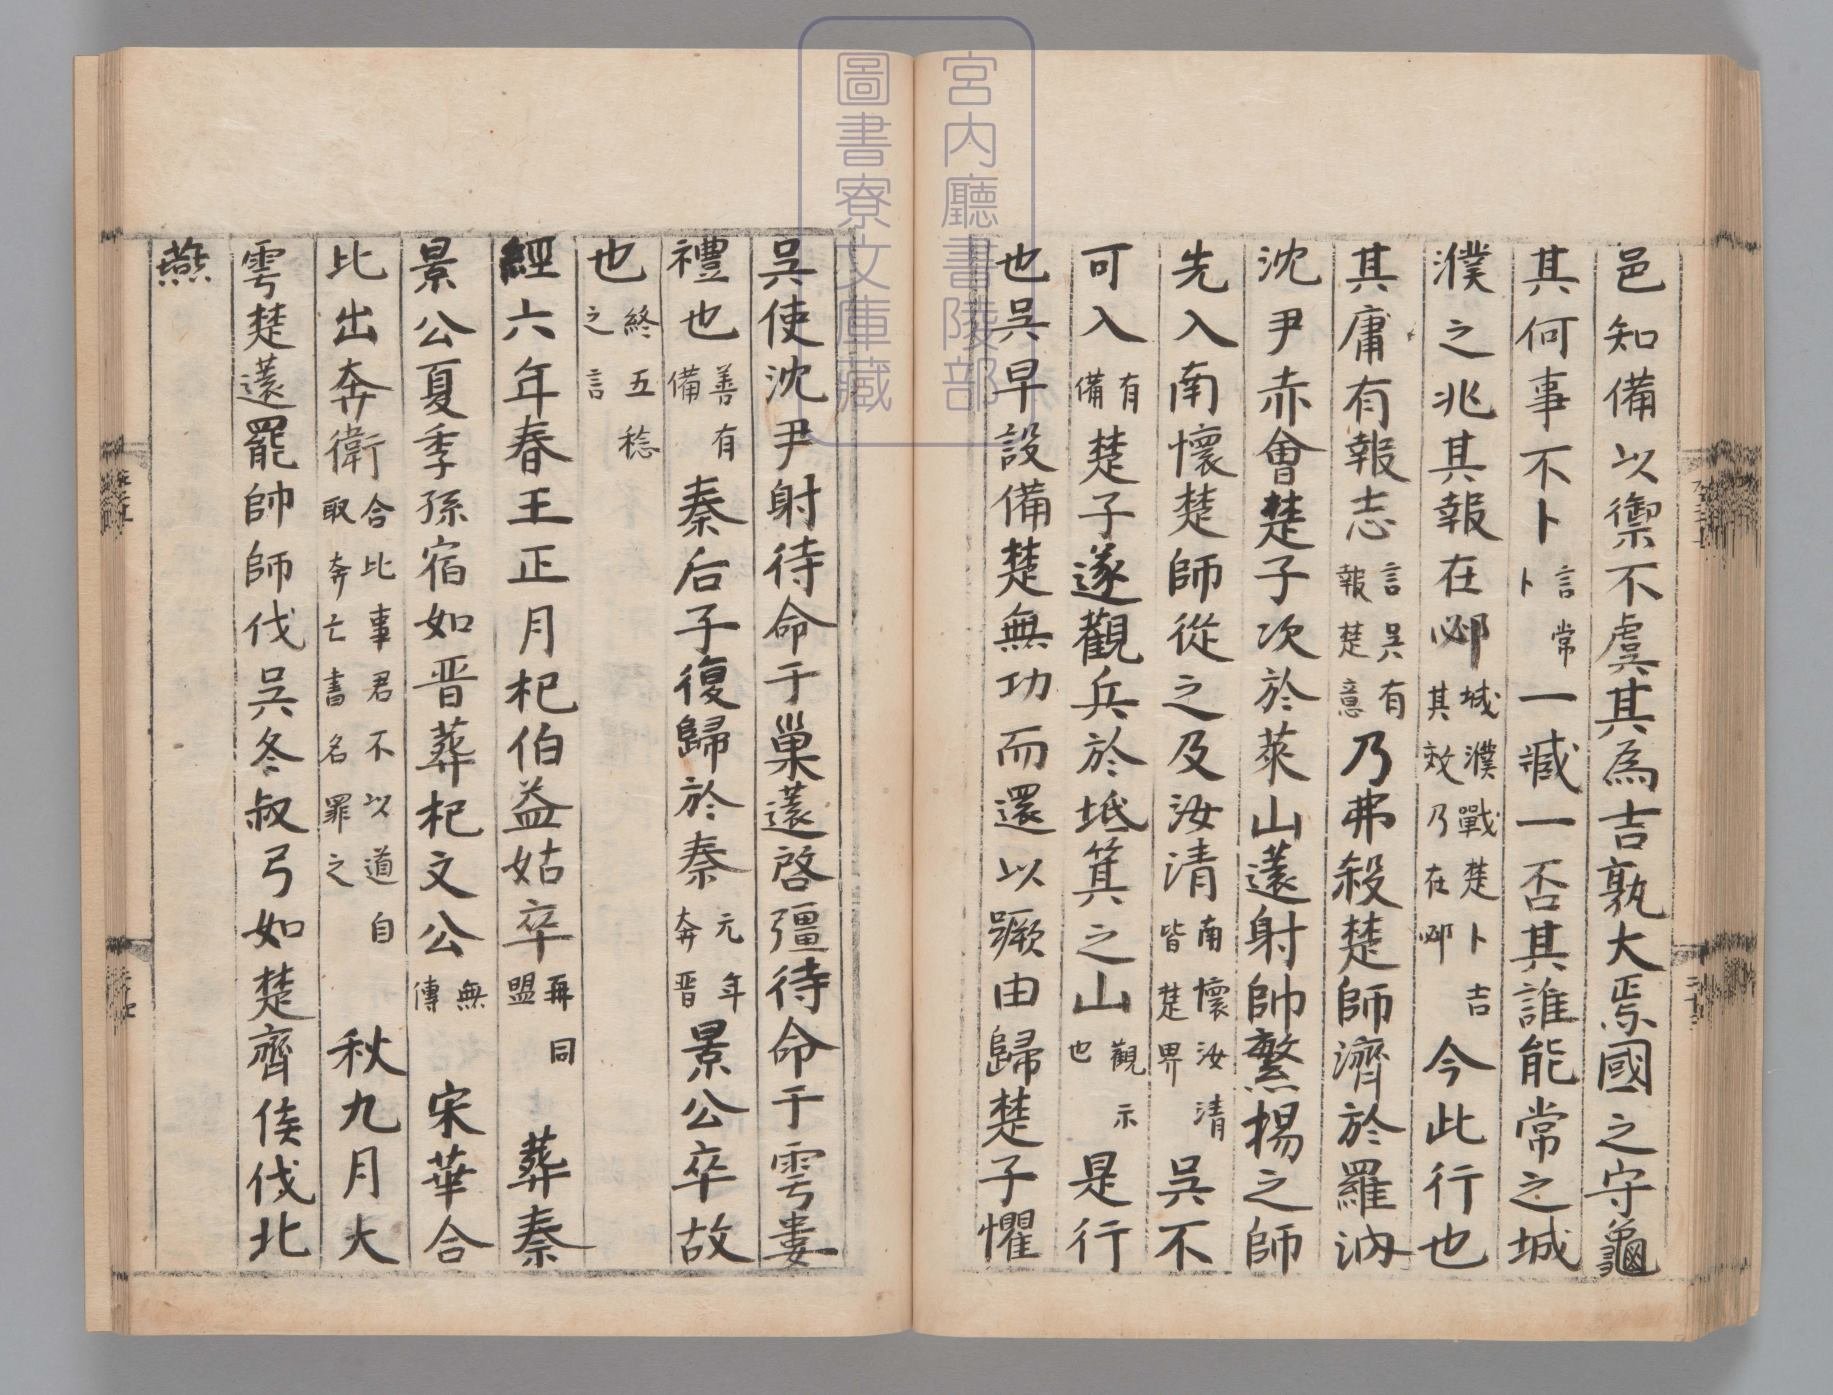 邑知備以禦不虞其為吉孰大焉國之守龜
其何事不卜言常卜一臧一否其誰能常之城
濮之兆其報在邲城濮戰楚卜吉其效乃在邲今此行也
其庸有報志言吳有報楚意乃弗殺楚師濟於羅汭
沈尹赤會楚子次於萊山薳射帥繁揚之師
先入南懷楚師從之及汝清南懷汝清皆楚界吳不
可入有備楚子遂觀兵於坻箕之山觀示也是行
也吳早設備楚無功而還以蹶由歸楚子懼
吳使沈尹射待命于巢薳啓彊待命于雩婁
禮也善有備秦后子復歸於秦元年奔晋景公卒故
也終五稔之言
經六年春王正月杞伯益姑卒再同盟葬秦
景公夏季孫宿如晋葬杞文公無傳宋華合
比出奔衛合比事君不以道自取奔亡書名罪之秋九月大
雩楚薳罷帥師伐吳冬叔弓如楚齊侯伐北
燕
宮内廳書陵部
圖書寮文庫藏